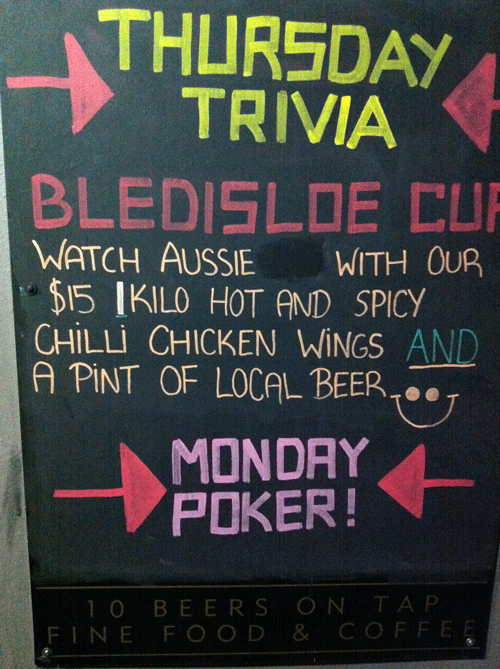 THURSDAY
TRIVIA
BLEDISLOE CUP
WATCH AUSSIE WITH OUR
$15 1 KILO HOT AND SPICY
CHiLLi CHICKEN WiNGS AND
A PiNT OF LOCAL BEER
MONDAY
POKER!
10 BEERS ON TAP
FINE FOOD & COFFEE